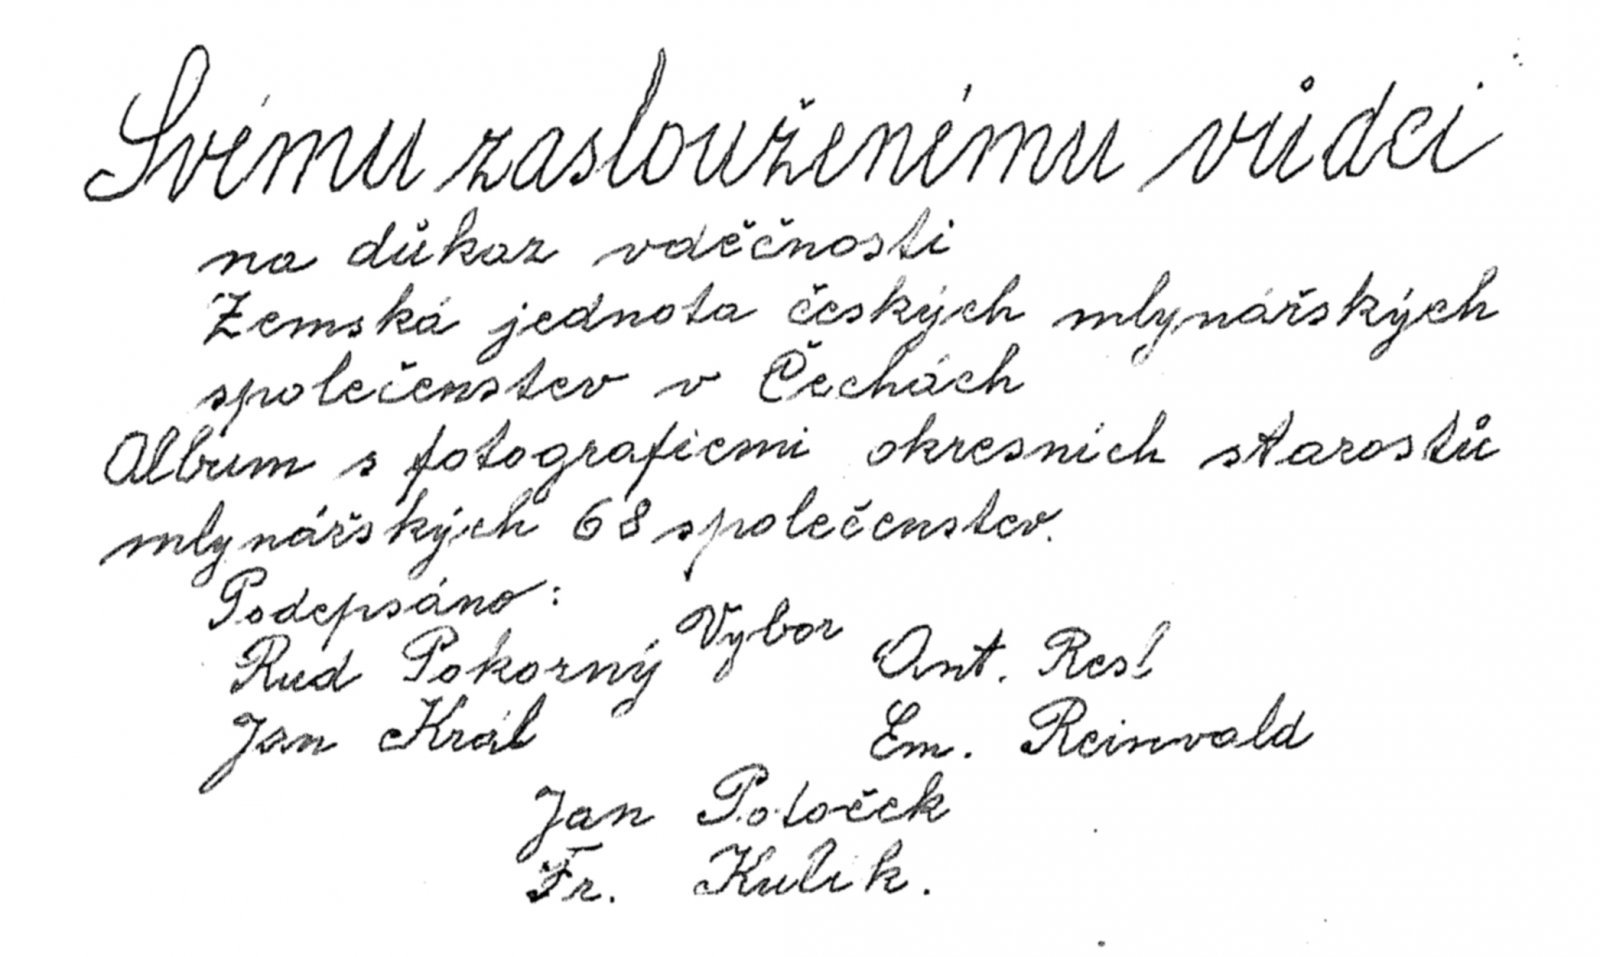 Svému zaslouženému vůdci
na důkaz vděčnosti
Zemská jednota českých mlynářských
společenstev v Čechách
Album s fotografiemi okresních starostů
mlynářských 68 společenstev.
Podepsáno:
Výbor
Rud Pokorný Ant. Resl
Jan Král Em. Reinvald
Jan Potoček
Fr. Kulik.